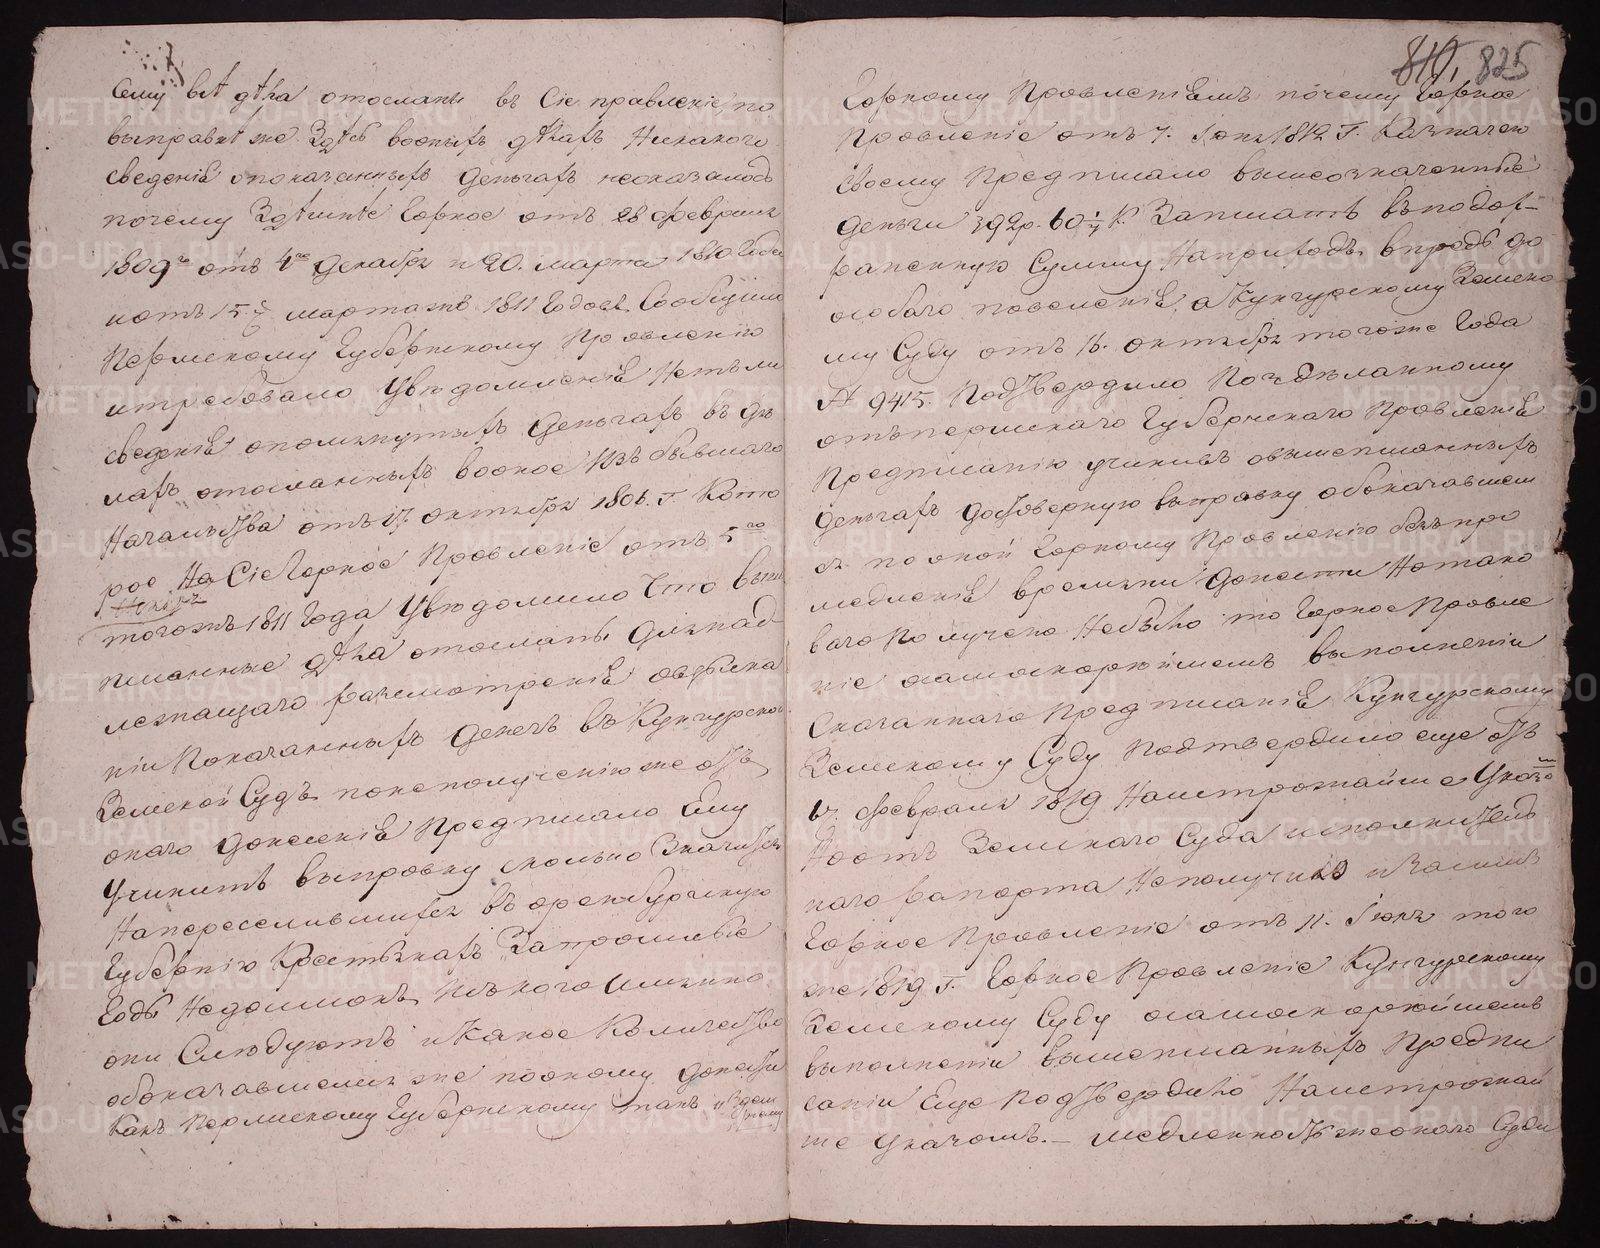 810, 825
сему всѣ дѣла отосланы въ сіе правленіе, по
выправкѣ же здѣсь воныхъ дѣлахъ никакого
сведенія опоказанныхъ деньгахъ неоказалось
почему здѣшнѣе Горное отъ 28 февраля
1809го отъ 4го декабря и 20. марта 1810 года
иотъ 15го мартажъ 1811 годовъ сообщили
Пермскому Губернскому Правленію
итребовало увѣдомленія нетъли
сведенія опомянутыхъ деньгахъ въ дѣ
лахъ отосланныхъ воное изъ бывшаго
Начальства отъ 17. октября 1806. г. Кото
рое На Сіе Горное Правленіе отъ 5го
тогожъ 1811 года увѣдомило что выше
писанные дѣла отосланы для над
лежащаго разсмотренія овзыска
ніи показанныхъ денегъ въ Кунгурской
Земской Судъ, понеполученіюже отъ
онаго донесенія предписало ему
учинить выправку сколько значится
Напереселившихся въ оренбургскую
Губернію Крестьянахъ Запрошлые
Годы Недоимокъ, иского имянно
они Слѣдуютъ икакое Количество
обоказавшемся же пооному донести
Какъ Пермскому Губернскому такъ и Здѣш
нему
Горному Правленіямъ почему Горное
Правленіе отъ 7. Іюня 1812 г. Казначею
своему предписало вышеозначенные
деньги 392р. 60 1/4 к. Записать въподоз-
рѣтельную Сумму Наприходъ, впредь до
особаго повеленія, а Кунгурскому Земско
му Суду отъ 16. октября тогоже Года
№ 9415. Подтвердило Поздѣланному
отъпермскаго Губернскаго Правленія
Предписанію учинивъ овышеписанныхъ
деньгахъ достоверную выправку обоказавшем
ся по оной Горному Правленію безъ про
медленія времяни донести Нотако
ваго Получено Небыло то Горное Правле
ніе осамоскорѣйшемъ выполненіи
Сказаннаго предписанія Кунгурскому
Земскому Суду Подтвердило еще отъ
6. февраля 1819 Настрожайше Указо
мъ
Ноотъ Земскаго Суда исполнитель
наго рапорта Неполучило иЗасимъ
Горное Правленіе отъ 11. Іюля того
же 1819 г. Горное Правленіе Кунгурскому
Земскому Суду осамоскорѣйшемъ
выполненіи вышеписанныхъ Предпи
саніи Еще подтвердило Настрожай
ше Указомъ.— медленностьжеонаго Суда